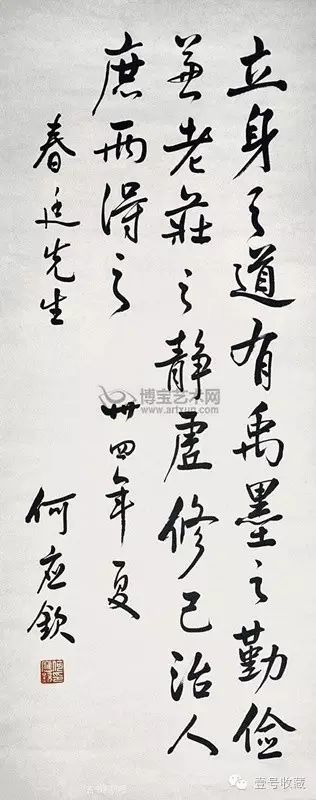 立身之道有禹墨之勤儉
兼老莊之静虚修己治人
庶兩得之
卅四年夏
春廷先生
何应欽
博宝艺术网
www.artxun.com
壹号收藏